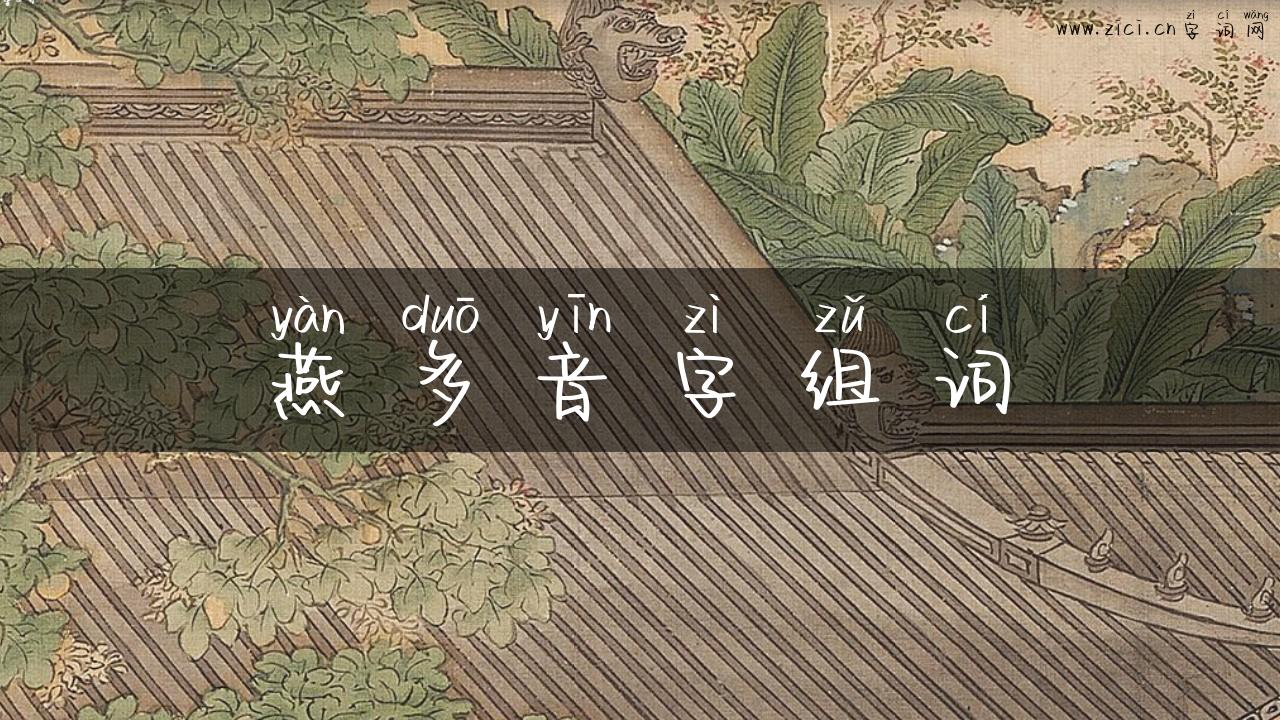 zì cí wǎng
www.zici.cn 字词网
yàn duō yīn zì zǔ cí
燕多音字组词